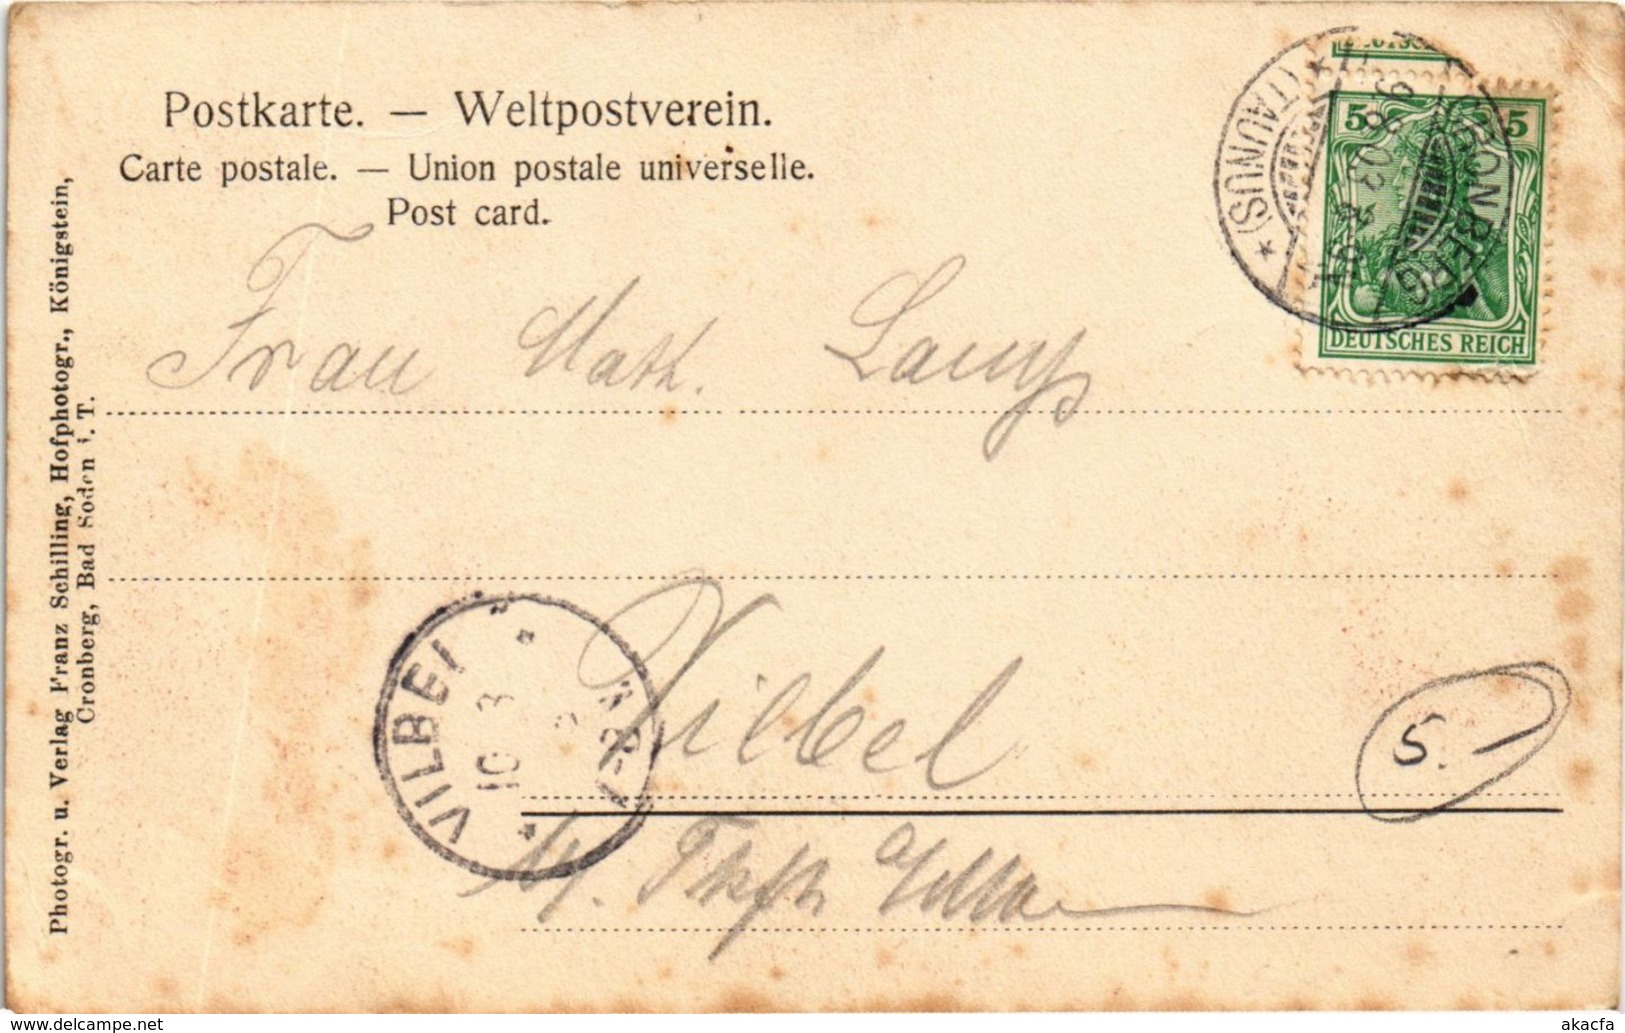 Postkarte. — Weltpostverein.
Carte postale. — Union postale universelle.
Post card.
Photogr. u. Verlag Franz Schilling, Hofphotogr., Königstein,
Cronberg, Bad Soden i. T.
CRONBERG
(TAUNUS)
5 5
DEUTSCHES REICH
Frau Math. Lamp
Vilbel
VILBEL
5.-
delcampe.net
akacfa